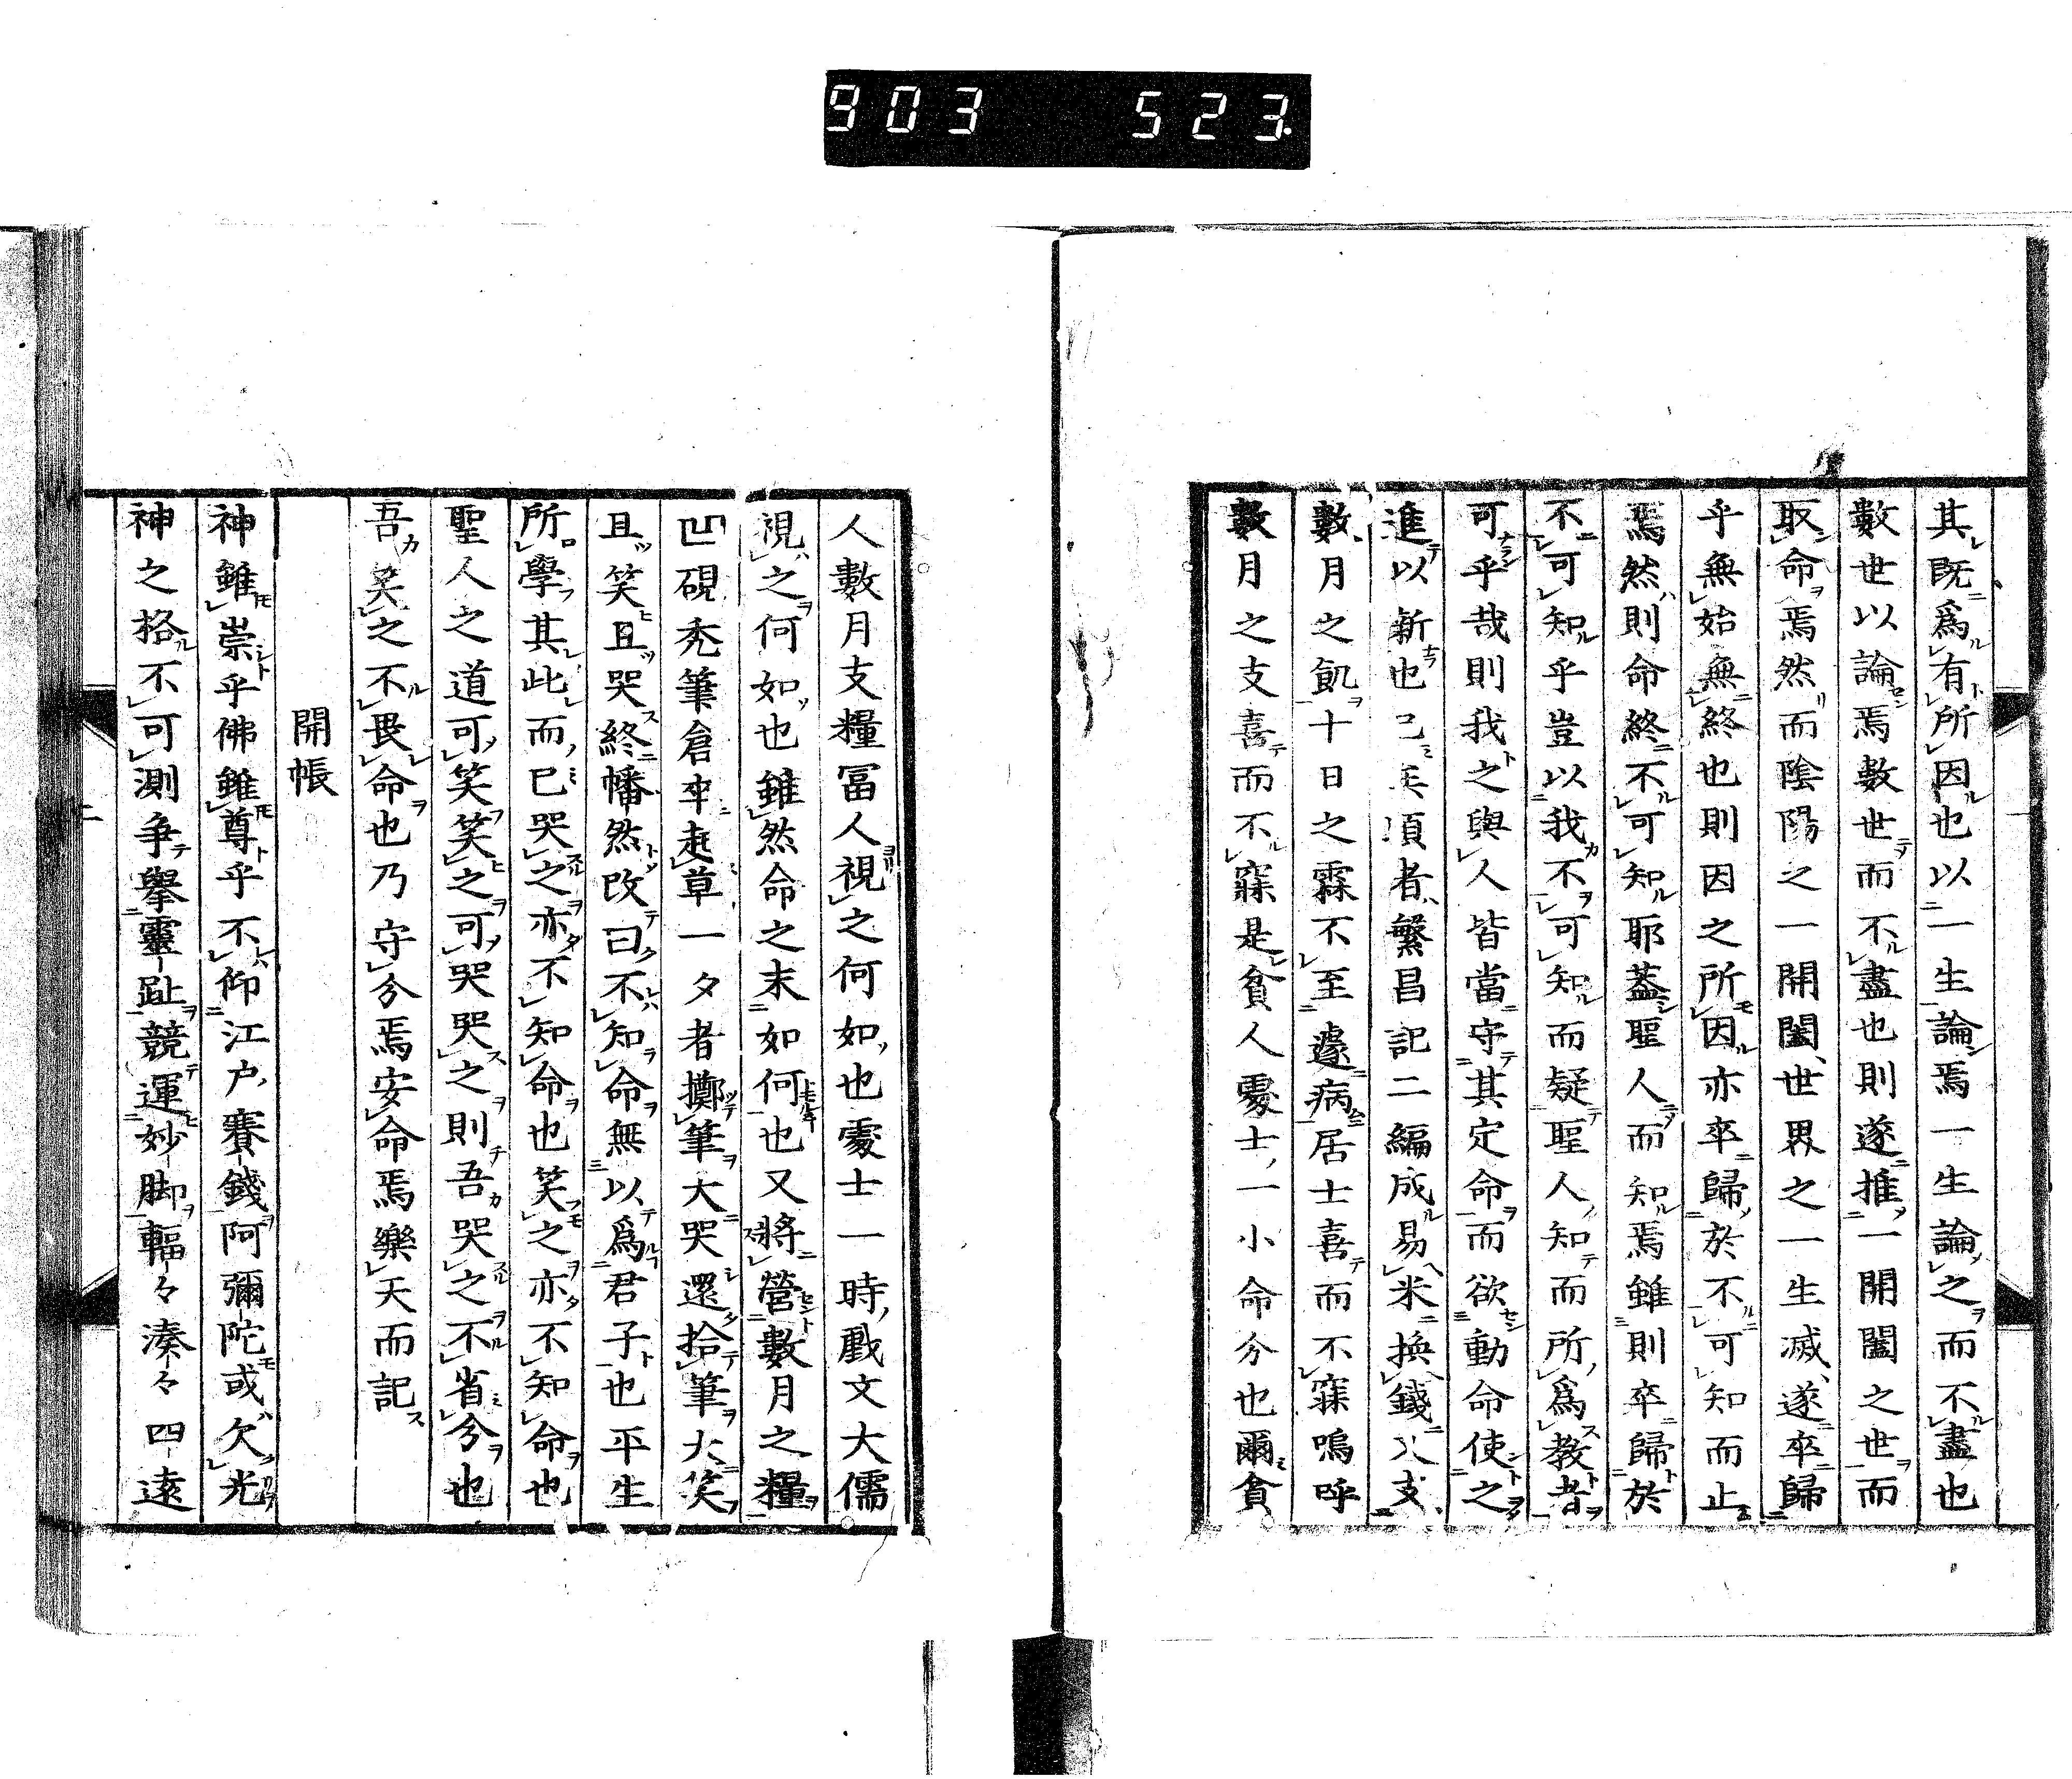 903 523
其既爲有所因也以一生論焉一生論之而不盡也
數世以論焉數世而不盡也則遂推一開闔之世而
取命焉然而陰陽之一開闔世界之一生滅遂卒歸
乎無始無終也則因之所因亦卒歸於不可知而止
焉然則命終不可知耶蓋聖人而知焉雖則卒歸於
不可知乎豈以我不可知而疑聖人知而所爲教者
可乎哉則我之與人皆當守其定命而欲動命使之
進以新也已矣頃者繁昌記二編成易米換錢又支
數月之飢十日之霖不至遽病居士喜而不寐嗚呼
數月之支喜而不寐是貧人處士一小命分也爾貧
人數月支糧冨人視之何如也處士一時戲文大儒
視之何如也雖然命之末如何也又將營數月之糧
凹硯禿筆倉卒起草一夕者擲筆大哭還拾筆大笑
且笑且哭終幡然改曰不知命無以爲君子也平生
所學其此而已哭之亦不知命也笑之亦不知命也
聖人之道可笑笑之可哭哭之則吾哭之不省分也
吾笑之不畏命也乃守分焉安命焉樂天而記
開帳
神雖崇乎佛雖尊乎不仰江戶賽錢阿彌陀或欠光
神之格不可測爭擧靈趾競運妙脚輻々湊々四遠
二